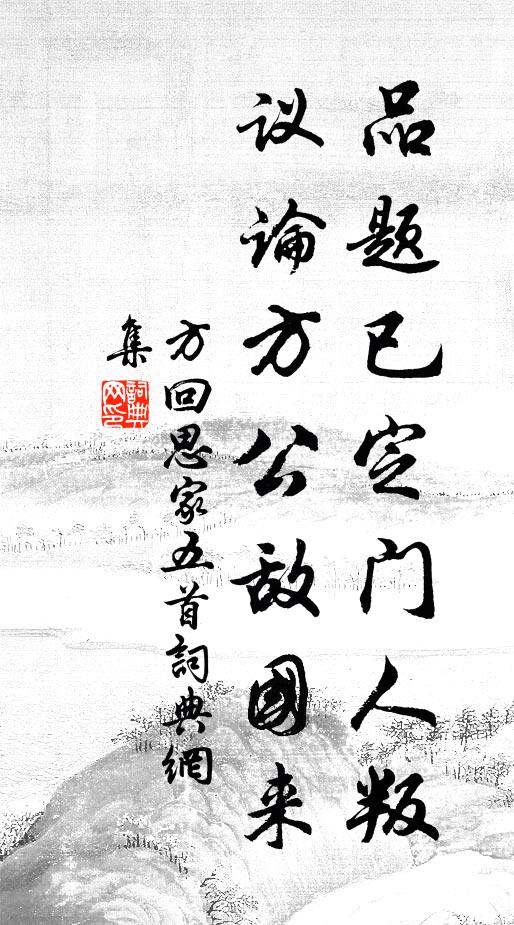 品题已定门人叛
议論方公敌國来
方回思家五首詞典網
集
詞典网印